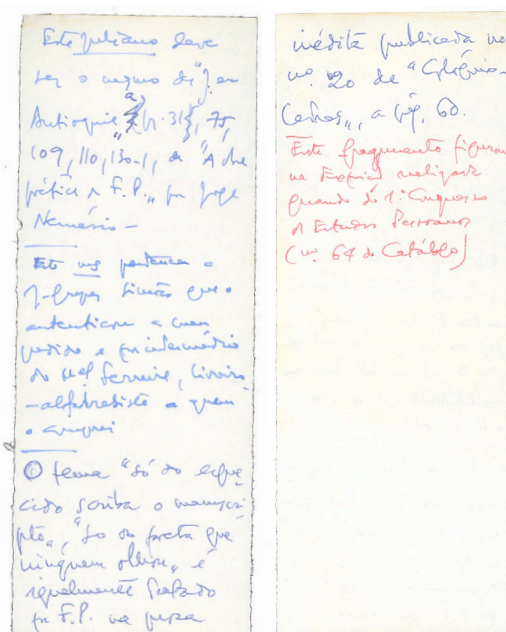 Este Juliano deve
ser o mesmo de "J. em
Antioquia" (p. 31), 75,
109, 110, 130-1, de "A obra
poética de F. P." por Jorge
Nemésio —
Este ms pertenceu a
J. Gaspar Simões que o
autenticou a meu
pedido e por intermédio
do Ferreira, livreiro
-alfarrabista a quem
o comprei
O tema "só do esque
cido scriba o manuscri
pto", "so do poeta que
ninguem olhou" é
igualmente tratado
por F. P. na poesia
inédita publicada no
nº. 20 de "Colóquio-
Letras", a pág. 60.
Este fragmento figurou
na Exposição realizada
quando do 1º. Congresso
de Estudos Pessoanos
(nº. 64 do Catálogo)